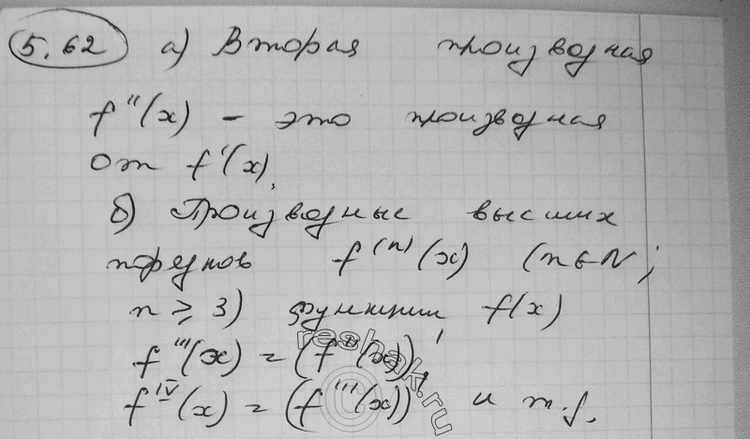 5.62 а) Вторая производная
f''(x) – это производная
от f'(x),
б) Производные высших
порядков f⁽ⁿ⁾(x) (n∈N;
n ≥ 3) функции f(x)
f'''(x) = (f''(x))',
f^IV(x) = (f'''(x))' и т.д.
reshak.ru